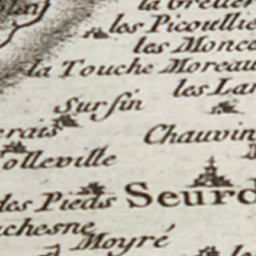 la Grelier
les Picoullie
les Monce
la Touche Moreau
les Lan
Sursin
erais
Chauvin
olleville
des Pieds
Seurd
uchesne
Moyré
le